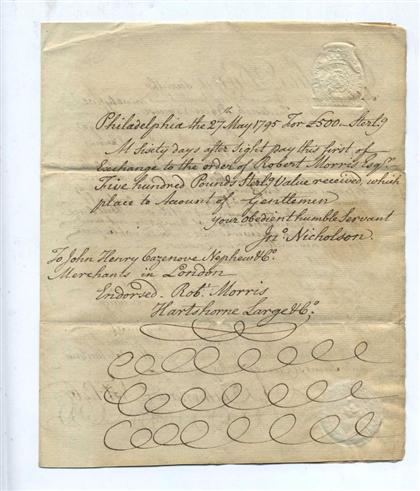 Philadelphia the 27th May 1795 For £500 — Sterlg
At Sixty days after Sight pay this first of
Exchange to the order of Robert Morris Esqr
Five hundred Pounds Sterlg Value received, which
place to Account of Gentlemen
Your obedient humble Servant
Jno. Nicholson.
To John Henry Cazenove Nephew & Co
Merchants in London
Endorsed Robt Morris
Hartshorne Large & Co